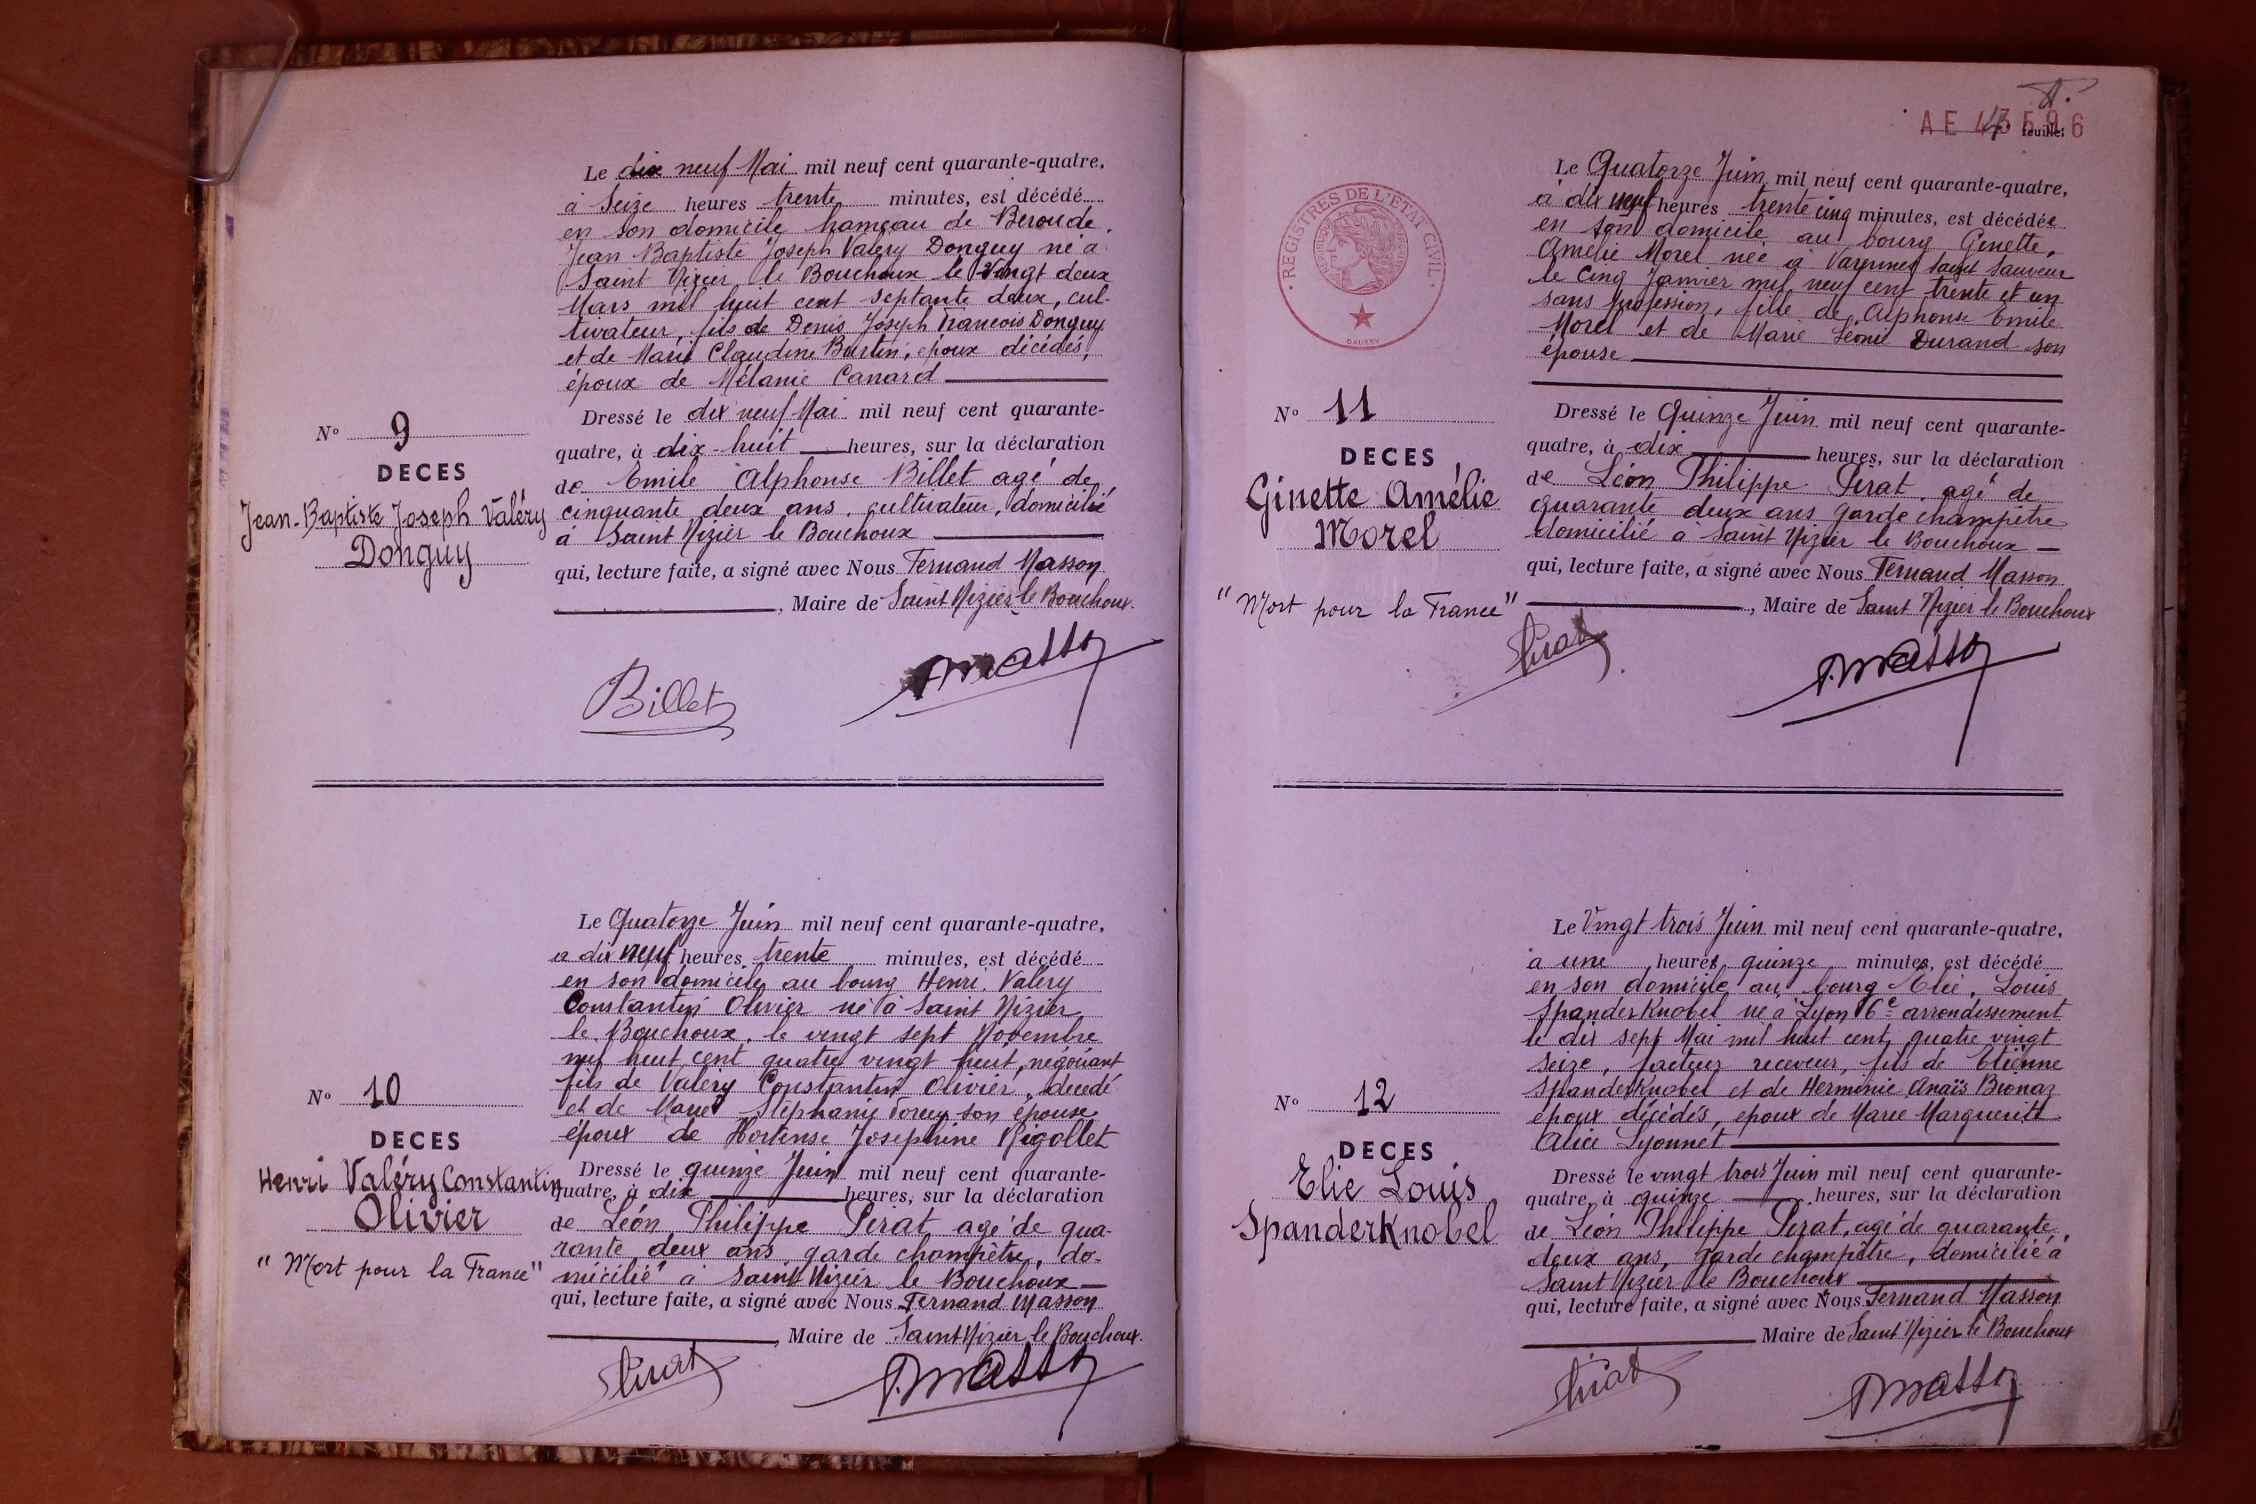 Le dix neuf Mai mil neuf cent quarante-quatre,
à Seize heures trente minutes, est décédé
en son domicile hameau de Beroude.
Jean-Baptiste Joseph Valéry Donguy né à
Saint Nizier le Bouchoux le Vingt deux
Mars mil huit cent septante deux, cul-
tivateur, fils de Denis Joseph Francois Donguy
et de Marie Claudine Burtin, époux décédés,
époux de Mélanie Canard
Nº 9
DECES
Jean-Baptiste Joseph Valéry
Donguy
Dressé le dix neuf Mai mil neuf cent quarante-
quatre, à dix-huit heures, sur la déclaration
de Emile Alphonse Billet agé de
cinquante deux ans, cultivateur, domicilié
à Saint Nizier le Bouchoux
qui, lecture faite, a signé avec Nous Fernand Masson
, Maire de Saint Nizier le Bouchoux.
Billet
FMasson
Le Quatorze Juin mil neuf cent quarante-quatre,
à dix neuf heures trente minutes, est décédé
en son domicile au bourg Henri, Valéry
Constantin Olivier né à Saint Nizier
le Bouchoux, le vingt sept Novembre
mil huit cent quatre vingt huit, négociant
fils de Valéry Constantin Olivier, décédé
et de Marie Stéphanie son épouse
époux de Hortense Joséphine Rigollet
Nº 10
DECES
Henri Valéry Constantin
Olivier
"Mort pour la France"
Dressé le quinze Juin mil neuf cent quarante-
quatre, à dix heures, sur la déclaration
de Léon Philippe Pirat agé de qua-
rante deux ans garde champêtre, do-
micilié à Saint Nizier le Bouchoux
qui, lecture faite, a signé avec Nous Fernand Masson
, Maire de Saint Nizier le Bouchoux.
Pirat
FMasson
AE 43596
4 feuillet
REGISTRES DE L'ETAT CIVIL
Le Quatorze Juin mil neuf cent quarante-quatre,
à dix neuf heures trente cinq minutes, est décédée
en son domicile au bourg Ginette,
Amélie Morel née à Varennes Saint Sauveur
le Cinq Janvier mil neuf cent trente et un
sans profession, fille de Alphonse Emile
Morel et de Marie Léonie Durand son
épouse
Nº 11
DECES
Ginette Amélie
Morel
"Mort pour la France"
Dressé le Quinze Juin mil neuf cent quarante-
quatre, à dix heures, sur la déclaration
de Léon Philippe Pirat, agé de
quarante deux ans garde champêtre
domicilié à Saint Nizier le Bouchoux
qui, lecture faite, a signé avec Nous Fernand Masson
, Maire de Saint Nizier le Bouchoux
Pirat
FMasson
Le Vingt trois Juin mil neuf cent quarante-quatre,
à une heures quinze minutes, est décédé
en son domicile au bourg Elie, Louis
Spanderknobel né à Lyon 6e arrondissement
le dix sept Mai mil huit cent quatre vingt
seize, facteur receveur, fils de Etienne
Spanderknobel et de Herminie Anaïs Bionaz
époux décédés, époux de Marie Marguerite
Alice Lyonnet
Nº 12
DECES
Elie Louis
Spanderknobel
Dressé le vingt trois Juin mil neuf cent quarante-
quatre, à quinze heures, sur la déclaration
de Léon Philippe Pirat, agé de quarante
deux ans, garde champêtre, domicilié à
Saint Nizier le Bouchoux
qui, lecture faite, a signé avec Nous Fernand Masson
Maire de Saint Nizier le Bouchoux
Pirat
FMasson